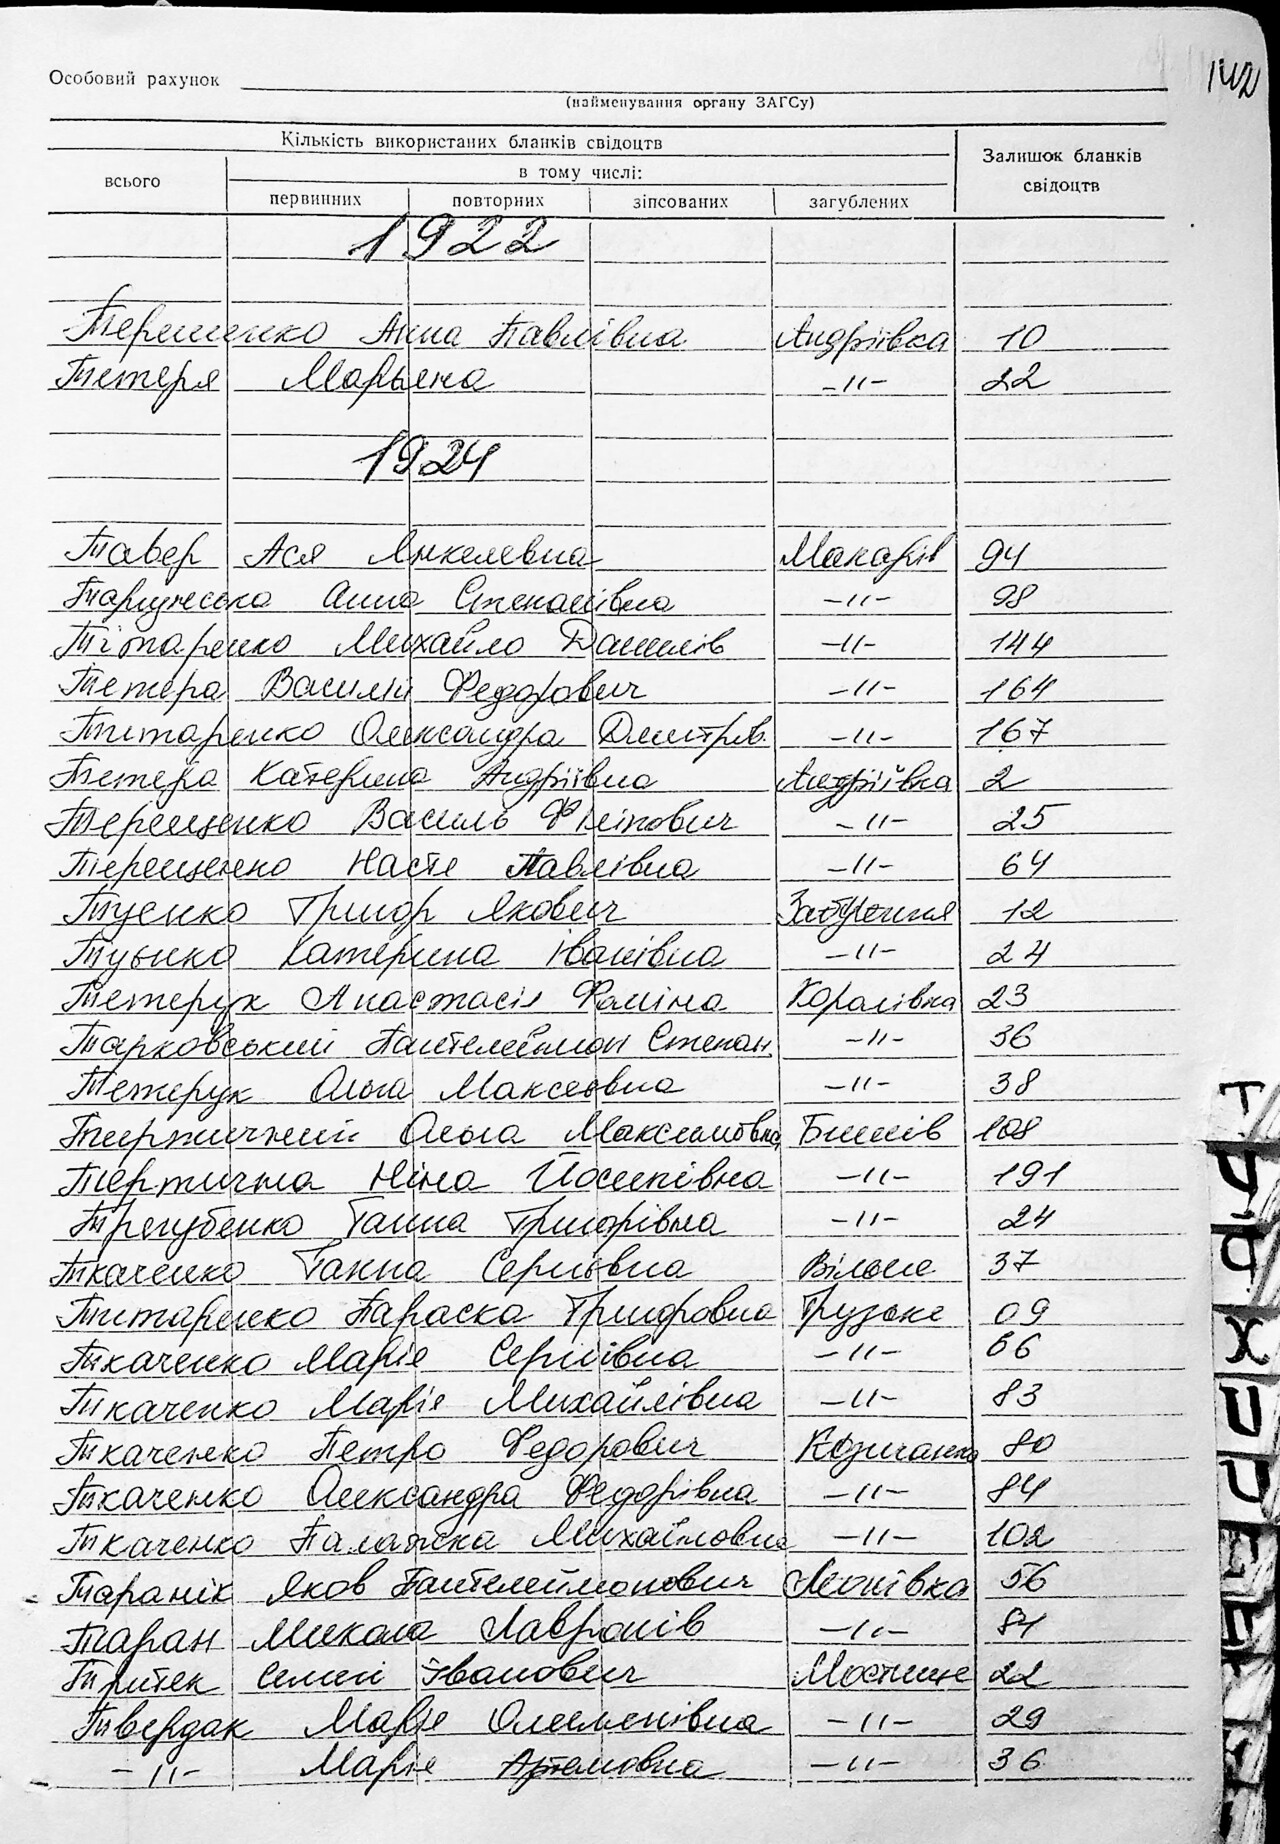 142
Особовий рахунок
(найменування органу ЗАГСу)
Кількість використаних бланків свідоцтв
Залишок бланків свідоцтв
всього
в тому числі:
первинних повторних зіпсованих загублених
1922
Терещенко Анна Павлівна Андріївка 10
Тетеря Марьяна -"- 22
1924
Табер Ася Янкелевна Макарів 94
Анна Степанівна -"- 98
Тітаренко Михайло Данилів -"- 144
Тетера Василій Федорович -"- 164
Титаренко Олександра Дмитрів. -"- 167
Тетера Катерина Андріївна Андріївка 2
Терещенко Василь Філіпович -"- 25
Терещенко Настя Павлівна -"- 64
Туценко Григор Якович Забуяння 12
Катерина Іванівна -"- 24
Тетерук Анастасія Фоміна Королівка 23
Тарковський Пантелеймон Степан. -"- 36
Тетерук Ольга Максимовна -"- 38
Тиртичний Ольга Максимовна Бишів 108
Тертична Ніна Йосипівна -"- 191
Трегубенко Ганна Григорівна -"- 24
Ткаченко Ганна Сергіївна Вільне 37
Титаренко Параска Григоровна Грузьке 09
Ткаченко Марія Сергіівна -"- 66
Ткаченко Марія Михайлівна -"- 83
Ткаченко Петро Федорович Козичанка 80
Ткаченко Олександра Федорівна -"- 84
Ткаченко Палажка Михайловна -"- 102
Таранік Яков Пантелеймонович Леонівка 56
Таран Микола Лавронів -"- 81
Тритек Семен Іванович Мостище 22
Твердак Марія Олексенівна -"- 29
-"- Марія Артемовна -"- 36
Т
У
Ф
Х
Ц